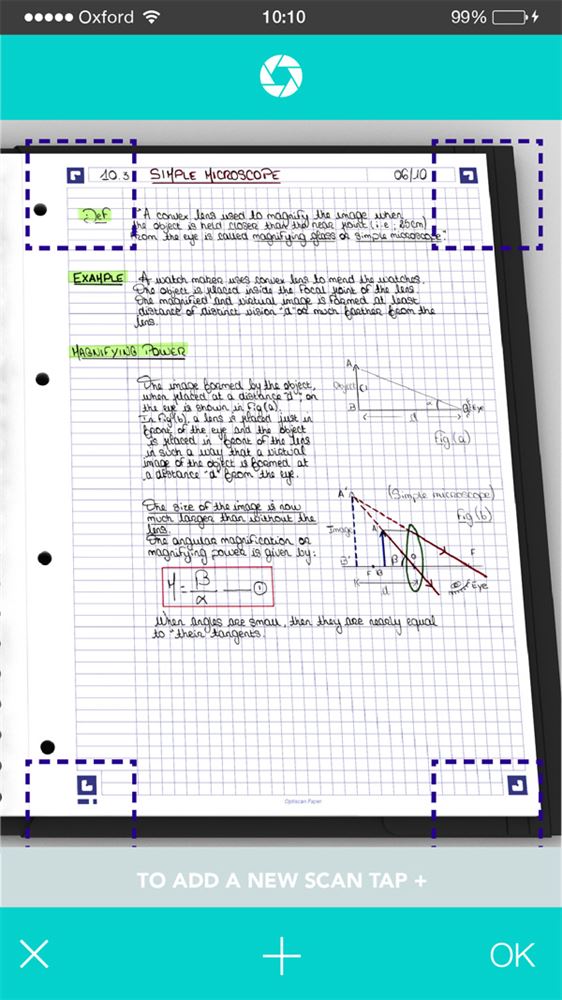 Oxford 10:10 99%
10.3 SIMPLE MICROSCOPE 06/10
Def "A convex lens used to magnify the image when
the object is held closer than the near point (i.e.; 25cm)
from the eye is called magnifying glass or simple microscope".
EXAMPLE A watch maker uses convex lens to mend the watches.
The object is placed inside the focal point of the lens.
The magnified and virtual image is formed at least
distance of distinct vision "d" or much farther from the
lens.
MAGNIFYING POWER
The image formed by the object,
when placed at a distance "d", on
the eye is shown in Fig(a).
In Fig(b), a lens is placed just in
front of the eye and the object
is placed in front of the lens
in such a way that a virtual
image of the object is formed at
a distance "d" from the eye.
A
Object
B d Eye
α
Fig(a)
The size of the image is now
much larger than without the
lens.
The angular magnification or
magnifying power is given by:
M = β/α ——①
A' (Simple microscope)
Fig(b)
Image A
B' F B β O F
d Eye
When angles are small, then they are nearly equal
to "their tangents.
Optiscan Paper
TO ADD A NEW SCAN TAP +
OK